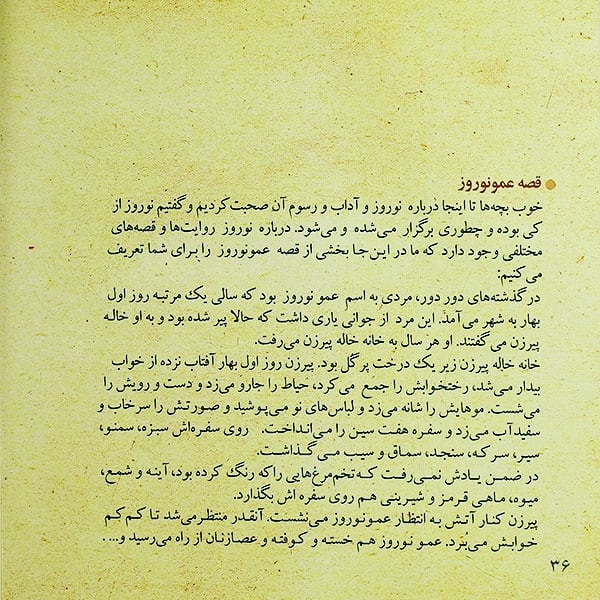 قصه عمونوروز
خوب بچه‌ها تا اینجا درباره نوروز و آداب و رسوم آن صحبت کردیم و گفتیم نوروز از
کی بوده و چطوری برگزار می‌شده و می‌شود. درباره نوروز روایت‌ها و قصه‌های
مختلفی وجود دارد که ما در این‌جا بخشی از قصه عمونوروز را برای شما تعریف
می‌کنیم:
در گذشته‌های دور دور، مردی به اسم عمو نوروز بود که سالی یک مرتبه روز اول
بهار به شهر می‌آمد. این مرد از جوانی یاری داشت که حالا پیر شده بود و به او خاله
پیرزن می‌گفتند. او هر سال به خانه خاله پیرزن می‌رفت.
خانه خاله پیرزن زیر یک درخت پر گل بود. پیرزن روز اول بهار آفتاب نزده از خواب
بیدار می‌شد، رختخوابش را جمع می‌کرد، حیاط را جارو می‌زد و دست و رویش را
می‌شست. موهایش را شانه می‌زد و لباس‌های نو می‌پوشید و صورتش را سرخاب و
سفیدآب می‌زد و سفره هفت سین را می‌انداخت. روی سفره‌اش سبزه، سمنو،
سیر، سرکه، سنجد، سماق و سیب می‌گذاشت.
در ضمن یادش نمی‌رفت که تخم‌مرغ‌هایی را که رنگ کرده بود، آینه و شمع،
میوه، ماهی قرمز و شیرینی هم روی سفره اش بگذارد.
پیرزن کنار آتش به انتظار عمونوروز می‌نشست. آنقدر منتظر می‌شد تا کم‌کم
خوابش می‌بُرد. عمو نوروز هم خسته و کوفته و عصازنان از راه می‌رسید و... .
۳۶